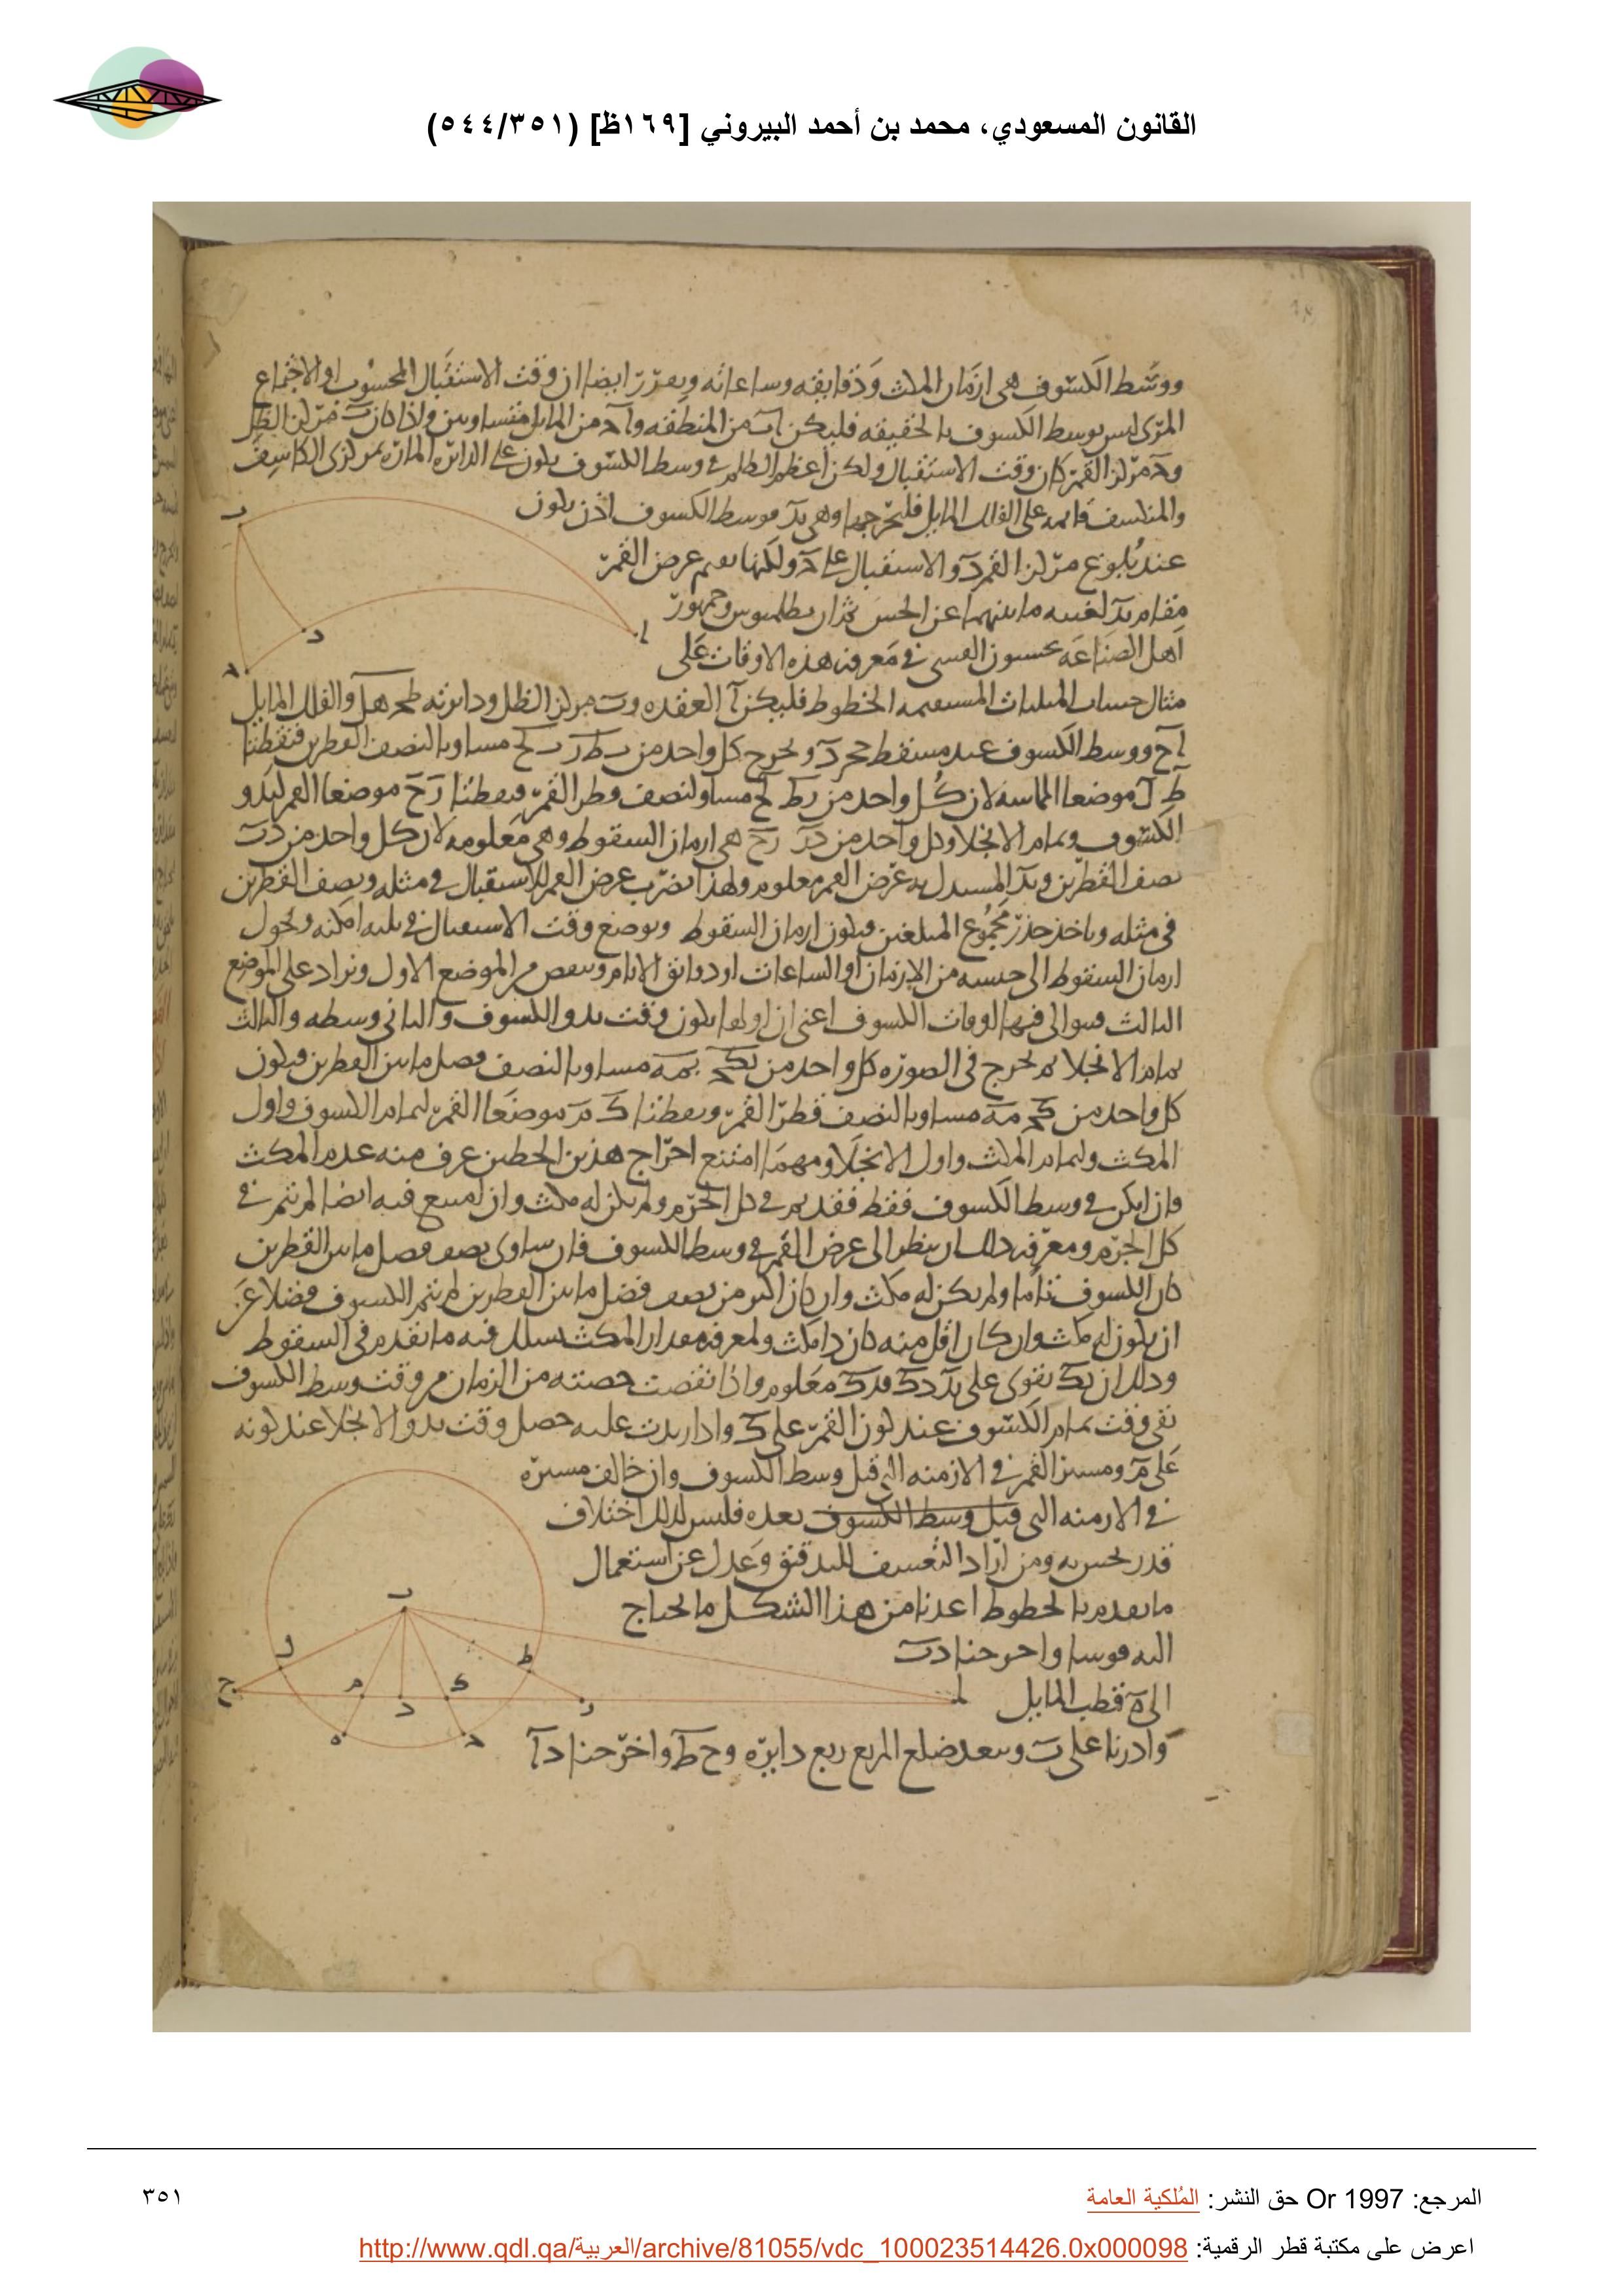 القانون المسعودي، محمد بن أحمد البيروني [١٦٩ظ] (٥٤٤/٣٥١)
ووسط الكسوف هى ازمان المكث ودقايقه وساعاته ويعرف ايضا ان وقت الاستقبال المحسوب او الاجتماع
المرى ليس بوسط الكسوف بالحقيقه فليكن اب من المنطقه واد من المايل متساويين واذا كان ب مركز الظل
ود مركز القمر كان وقت الاستقبال ولكن اعظم الظلم فى وسط الكسوف يكون على الدايره الماره بمركزى الكاسف
والمنكسف قايمه على الفلك المايل فليخرجها وهى بد فوسط الكسوف اذن يكون
عند بلوغ مركز القمر د والاستقبال على ولكنها نقيم عرض القمر
مقام بد لغيبه ما بينهما عن الحس بطلميوس وجمهور
اهل الصناعه يحسبون القسى فى معرفه هذه الاوقات على
مثال حساب المثلثات المستقيمه الخطوط فليكن ا العقده وب مركز الظل ودايرته والفلك المايل
اح ووسط الكسوف عند مسقط ونخرج كل واحد من مساويا لنصف القطرين فنقطتا
ط ل موضعا المماسه لان كل واحد من مساو لنصف قطر القمر ونقطتا ز ح موضعا القمر لبدو
الكسوف وتمام الانجلا وكل واحد من هى ازمان السقوط وهى معلومه لان كل واحد من
نصف القطرين وبد المستدل به عرض القمر معلوم ولهذا نضرب عرض القمر للاستقبال فى مثله ونصف القطرين
فى مثله وناخذ جذر مجموع المبلغين فيكون ازمان السقوط ونوضع وقت الاستقبال فى ثلثه امكنه ونحول
ازمان السقوط الى جنسه من الازمان او الساعات او دقايق الايام وننقص من الموضع الاول ونزاد على الموضع
الثالث فيتوالى فيها اوقات الكسوف اعنى ان اولها يكون وقت بدو الكسوف والثانى وسطه والثالث
تمام الانجلا ثم نخرج فى الصوره كل واحد من مساويا لنصف فضل ما بين القطرين فيكون
كل واحد من مساويا لنصف قطر القمر ونقطتا ك م موضعا القمر لتمام الكسوف واول
المكث ولتمام المكث واول الانجلا ومهما امتنع اخراج هذين الخطين عرف منه عدم المكث
وان امكن فى وسط الكسوف فقط فقد تم فى كل الجرم ولم يكن له مكث وان امتنع فيه ايضا لم يتم فى
كل الجرم ومعرفه ذلك ان ينظر الى عرض القمر فى وسط الكسوف فان ساوى نصف فضل ما بين القطرين
كان الكسوف تاما ولم يكن له مكث وان كان اكثر من نصف فضل ما بين القطرين لم يتم الكسوف فضلا عن
ان يكون له مكث وان كان اقل منه كان ذا مكث ولمعرفه مقدار المكث نسلك فيه ما تقدم فى السقوط
وذلك ان بك يقوى على بد دك فدك معلوم واذا نقصت حصته من الزمان من وقت وسط الكسوف
بقى وقت تمام الكسوف عند كون القمر على ك واذا زيدت عليه حصل وقت بدو الانجلا عند كونه
على م ومسير القمر فى الازمنه التى قبل وسط الكسوف وان خالف مسيره
فى الازمنه التى قبل وسط الكسوف بعده فليس لذلك اختلاف
قدر يحس به ومن اراد التعسف للتدقيق وعدل عن استعمال
ما تقدم بالخطوط اعدنا من هذا الشكل ما يحتاج
اليه قوسا واخرجنا دب
الى ه قطب المايل
وادرنا على ب وببعد ضلع المربع ربع دايره وح ط واخرجنا دا
ب
ا
د
ح
ب
ل
ط
ج
م
د
ك
ز
ا
ه
ح
المرجع: Or 1997 حق النشر: المُلكية العامة
٣٥١
اعرض على مكتبة قطر الرقمية: http://www.qdl.qa/العربية/archive/81055/vdc_100023514426.0x000098